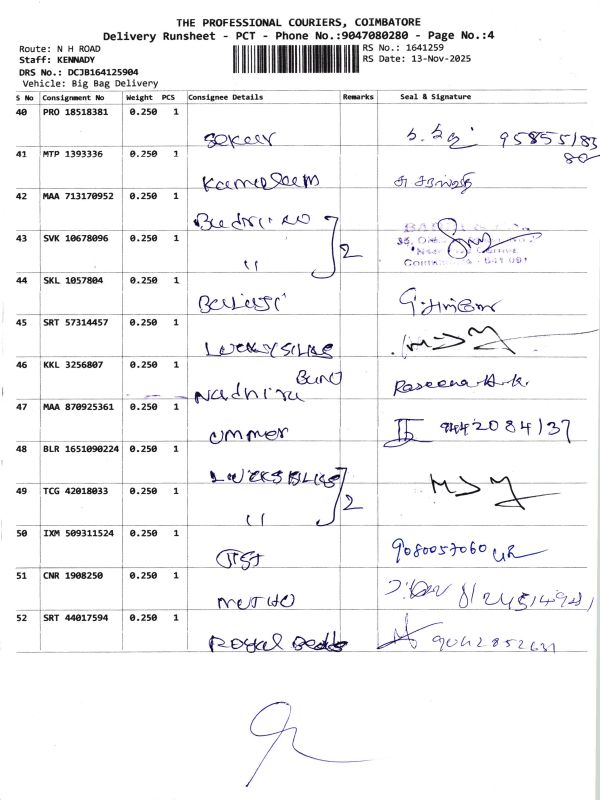 THE PROFESSIONAL COURIERS, COIMBATORE
Delivery Runsheet - PCT - Phone No.:9047080280 - Page No.:4
Route: N H ROAD
RS No.: 1641259
Staff: KENNADY
RS Date: 13-Nov-2025
DRS No.: DCJB164125904
Vehicle: Big Bag Delivery
S No Consignment No Weight PCS Consignee Details Remarks Seal & Signature
40 PRO 18518381 0.250 1
sekar
41 MTP 1393336 0.250 1
42 MAA 713170952 0.250 1
43 SVK 10678096 0.250 1
" 2
44 SKL 1057804 0.250 1
Balaji
45 SRT 57314457 0.250 1
LUCKYSILKS
46 KKL 3256807 0.250 1
Nadhira Banu Raseena
47 MAA 870925361 0.250 1
ummer 9442084137
48 BLR 1651090224 0.250 1
49 TCG 42018033 0.250 1
" 2
50 IXM 509311524 0.250 1
9080057060
51 CNR 1908250 0.250 1
52 SRT 44017594 0.250 1
Royal 9042852631